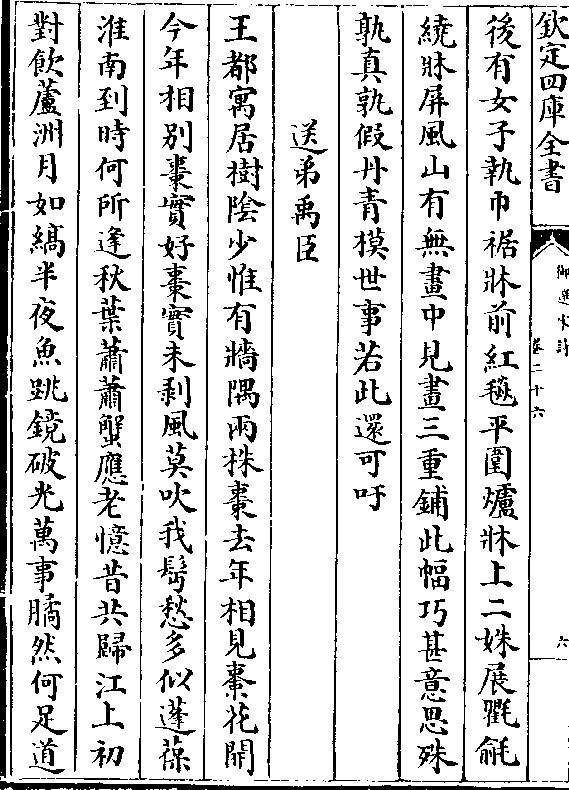 欽定四庫全書
御選宋詩
卷二十六
六
後有女子執巾裾牀前紅毯平圍爐牀上二姝展氍毹
繞牀屏風山有無畫中見畫三重鋪此幅巧甚意思殊
孰真孰假丹青摸世事若此還可吁
送弟禹臣
王都寓居樹陰少惟有牆隅兩株棗去年相見棗花開
今年相别棗實好棗實未剥風莫吹我髩愁多似蓬葆
淮南到時何所逢秋葉蕭蕭蟹應老憶昔共歸江上初
對飲蘆洲月如縞半夜魚跳鏡破光萬事膈然何足道